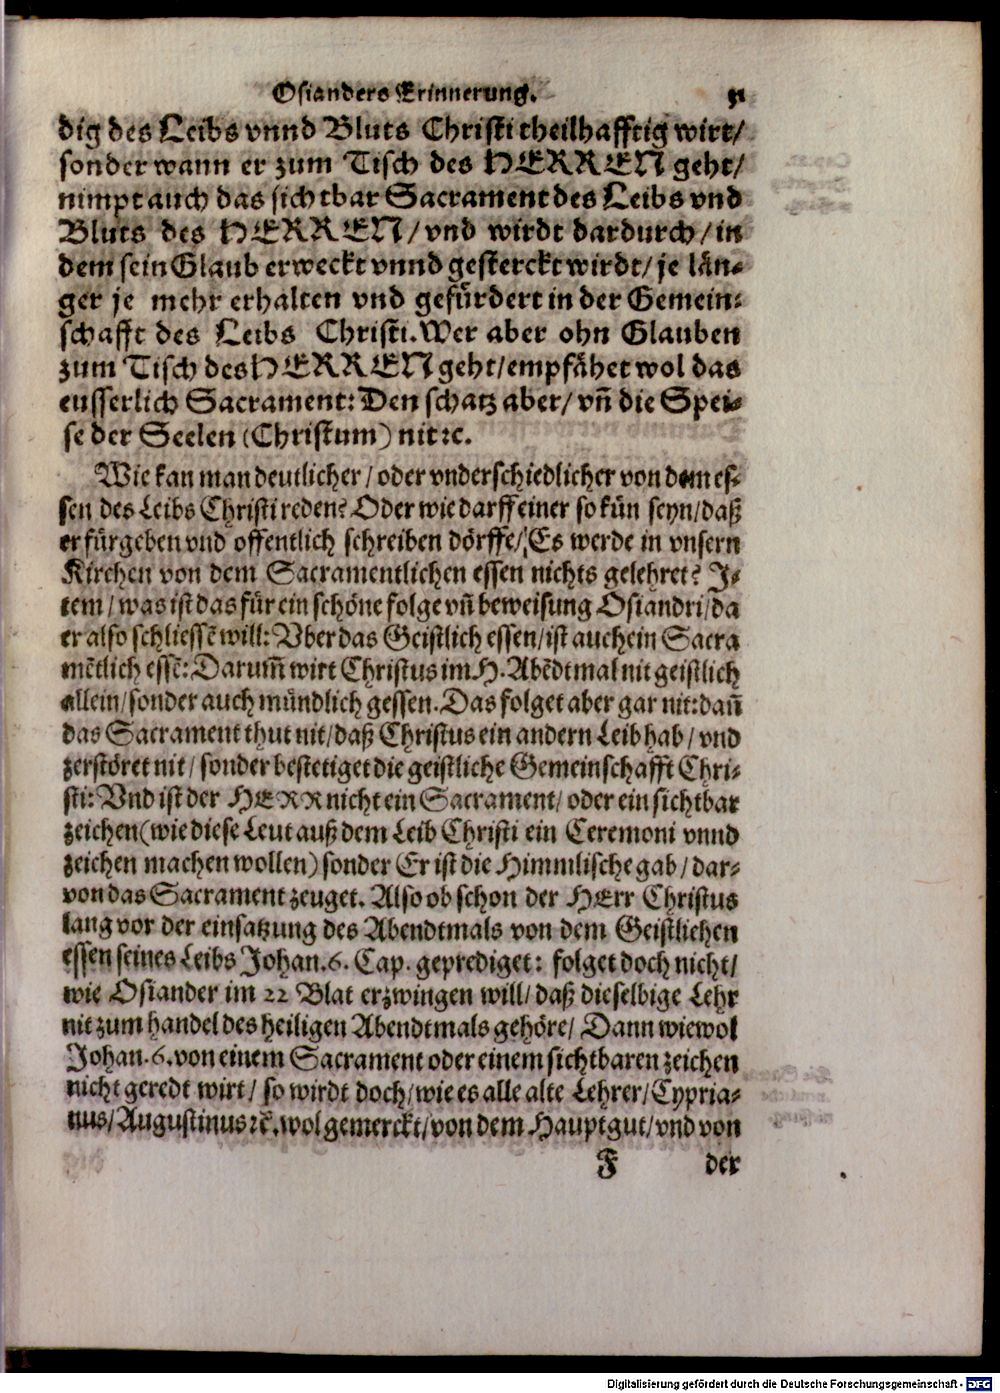 Osianders Erinnerung.
dig des Leibs vnnd Bluts Christi theilhafftig wirt/
sonder wann er zum Tisch des HERREN geht/
nimpt auch das sichtbar Sacrament des Leibs vnd
Bluts des HERREN/vnd wirdt dardurch/in
dem sein Glaub erweckt vnnd gesterckt wirdt/je län-
ger je mehr erhalten vnd gefürdert in der Gemein-
schafft des Leibs Christi. Wer aber ohn Glauben
zum Tisch des HERREN geht/empfähet wol das
eusserlich Sacrament: Den schatz aber/vñ die Spei-
se der Seelen (Christum) nit ꝛc.
Wie kan man deutlicher/oder vnderschiedlicher von dem es-
sen des Leibs Christi reden? Oder wie darff einer so kün seyn/daß
er fürgeben vnd offentlich schreiben dörffe/Es werde in vnsern
Kirchen von dem Sacramentlichen essen nichts gelehret? J-
tem/was ist das für ein schöne folge vñ beweisung Osiandri/da
er also schliessē will: Vber das Geistlich essen/ist auch ein Sacra
mētlich essē: Darum̃ wirt Christus im H. Abēdtmal nit geistlich
allein/sonder auch mündlich gessen. Das folget aber gar nit: dañ
das Sacrament thut nit/daß Christus ein andern Leib hab/vnd
zerstöret nit/sonder bestetiget die geistliche Gemeinschafft Chri-
sti: Vnd ist der HERR nicht ein Sacrament/oder ein sichtbar
zeichen (wie diese Leut auß dem Leib Christi ein Ceremoni vnnd
zeichen machen wollen) sonder Er ist die Himmlische gab/dar-
von das Sacrament zeuget. Also ob schon der HErr Christus
lang vor der einsatzung des Abendtmals von dem Geistlichen
essen seines Leibs Johan. 6. Cap. geprediget: folget doch nicht/
wie Osiander im 22 Blat erzwingen will/daß dieselbige Lehr
nit zum handel des heiligen Abendtmals gehöre/Dann wiewol
Johan. 6. von einem Sacrament oder einem sichtbaren zeichen
nicht geredt wirt/so wirdt doch/wie es alle alte Lehrer/Cypria-
nus/Augustinus ꝛc. wol gemerckt/von dem Hauptgut/vnd von
F der
Digitalisierung gefördert durch die Deutsche Forschungsgemeinschaft - DFG